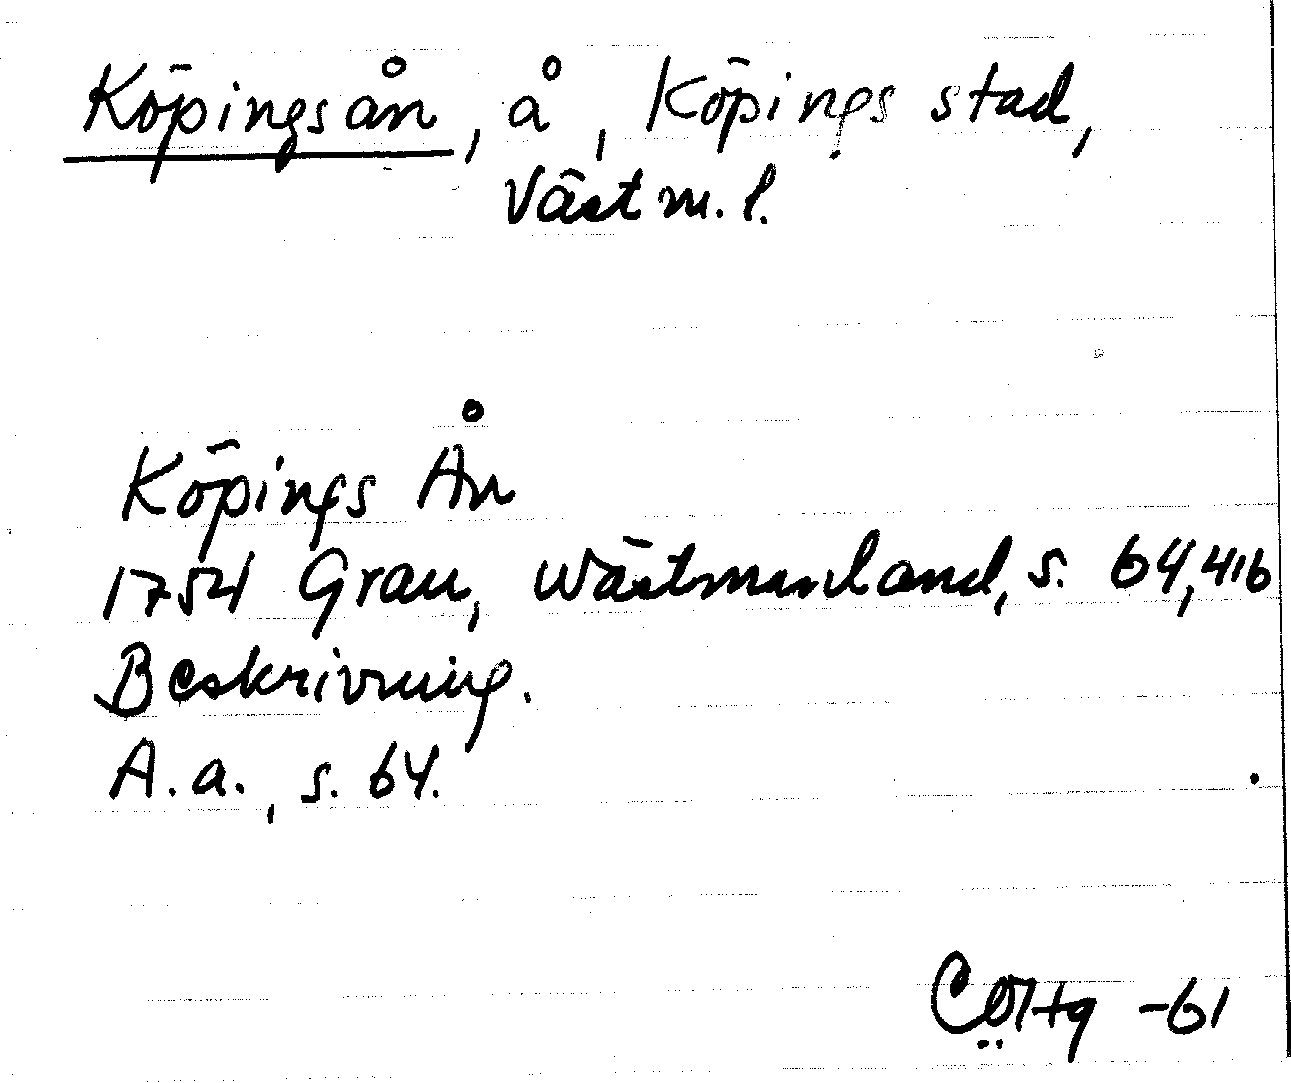 Köpingsån, å, Köpings stad,
Västm. l.
Köpings Ån
1754 Grau, Wästmanland, s. 64, 416
Beskrivning.
A. a., s. 64.
-61